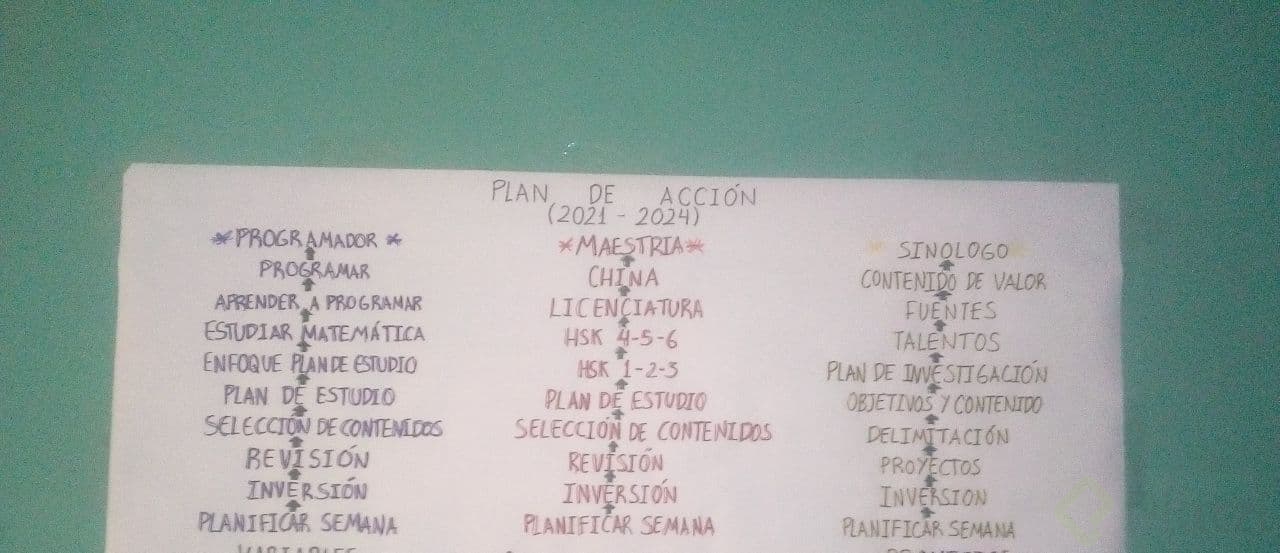 PLAN DE ACCIÓN
(2021 - 2024)
*PROGRAMADOR*
PROGRAMAR
APRENDER A PROGRAMAR
ESTUDIAR MATEMÁTICA
ENFOQUE PLAN DE ESTUDIO
PLAN DE ESTUDIO
SELECCIÓN DE CONTENIDOS
REVISIÓN
INVERSIÓN
PLANIFICAR SEMANA
*MAESTRIA*
CHINA
LICENCIATURA
HSK 4-5-6
HSK 1-2-3
PLAN DE ESTUDIO
SELECCIÓN DE CONTENIDOS
REVISIÓN
INVERSIÓN
PLANIFICAR SEMANA
* SINOLOGO *
CONTENIDO DE VALOR
FUENTES
TALENTOS
PLAN DE INVESTIGACIÓN
OBJETIVOS Y CONTENIDO
DELIMITACIÓN
PROYECTOS
INVERSION
PLANIFICAR SEMANA